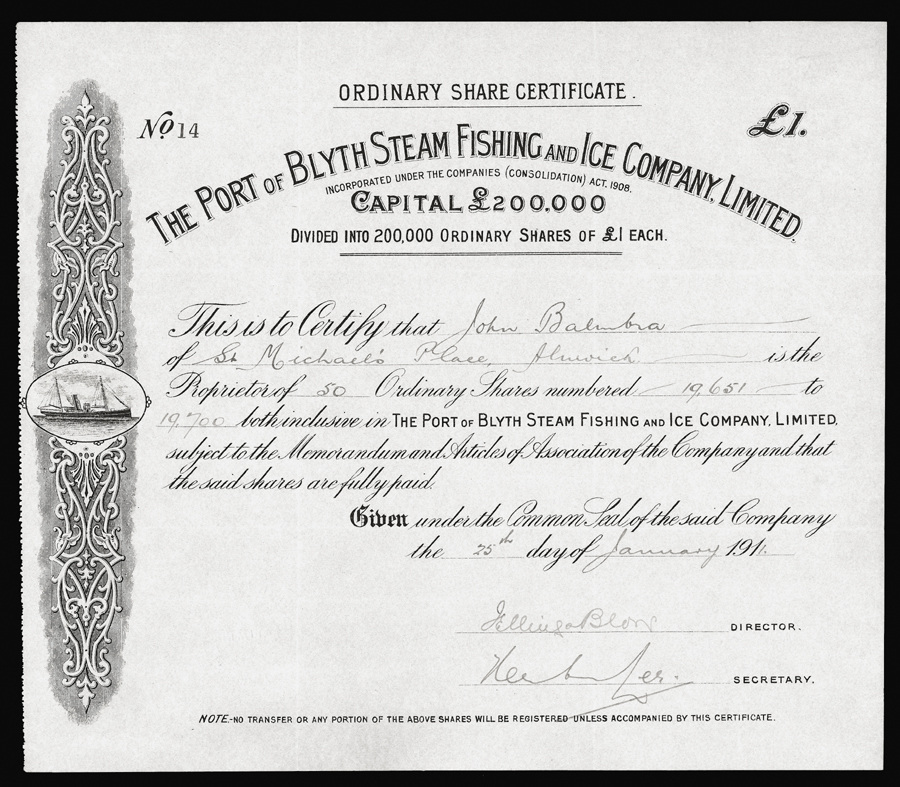 ORDINARY SHARE CERTIFICATE.
No 14
£1.
THE PORT OF BLYTH STEAM FISHING AND ICE COMPANY, LIMITED.
INCORPORATED UNDER THE COMPANIES (CONSOLIDATION) ACT, 1908.
CAPITAL £200,000
DIVIDED INTO 200,000 ORDINARY SHARES OF £1 EACH.
This is to Certify that John Balmbra
of St Michael's Place, Alnwick is the
Proprietor of 50 Ordinary Shares numbered 19,651 to
19,700 both inclusive in THE PORT OF BLYTH STEAM FISHING AND ICE COMPANY, LIMITED,
subject to the Memorandum and Articles of Association of the Company and that
the said shares are fully paid.
Given under the Common Seal of the said Company
the 25th day of January 1911.
DIRECTOR.
SECRETARY.
NOTE.-NO TRANSFER OR ANY PORTION OF THE ABOVE SHARES WILL BE REGISTERED UNLESS ACCOMPANIED BY THIS CERTIFICATE.